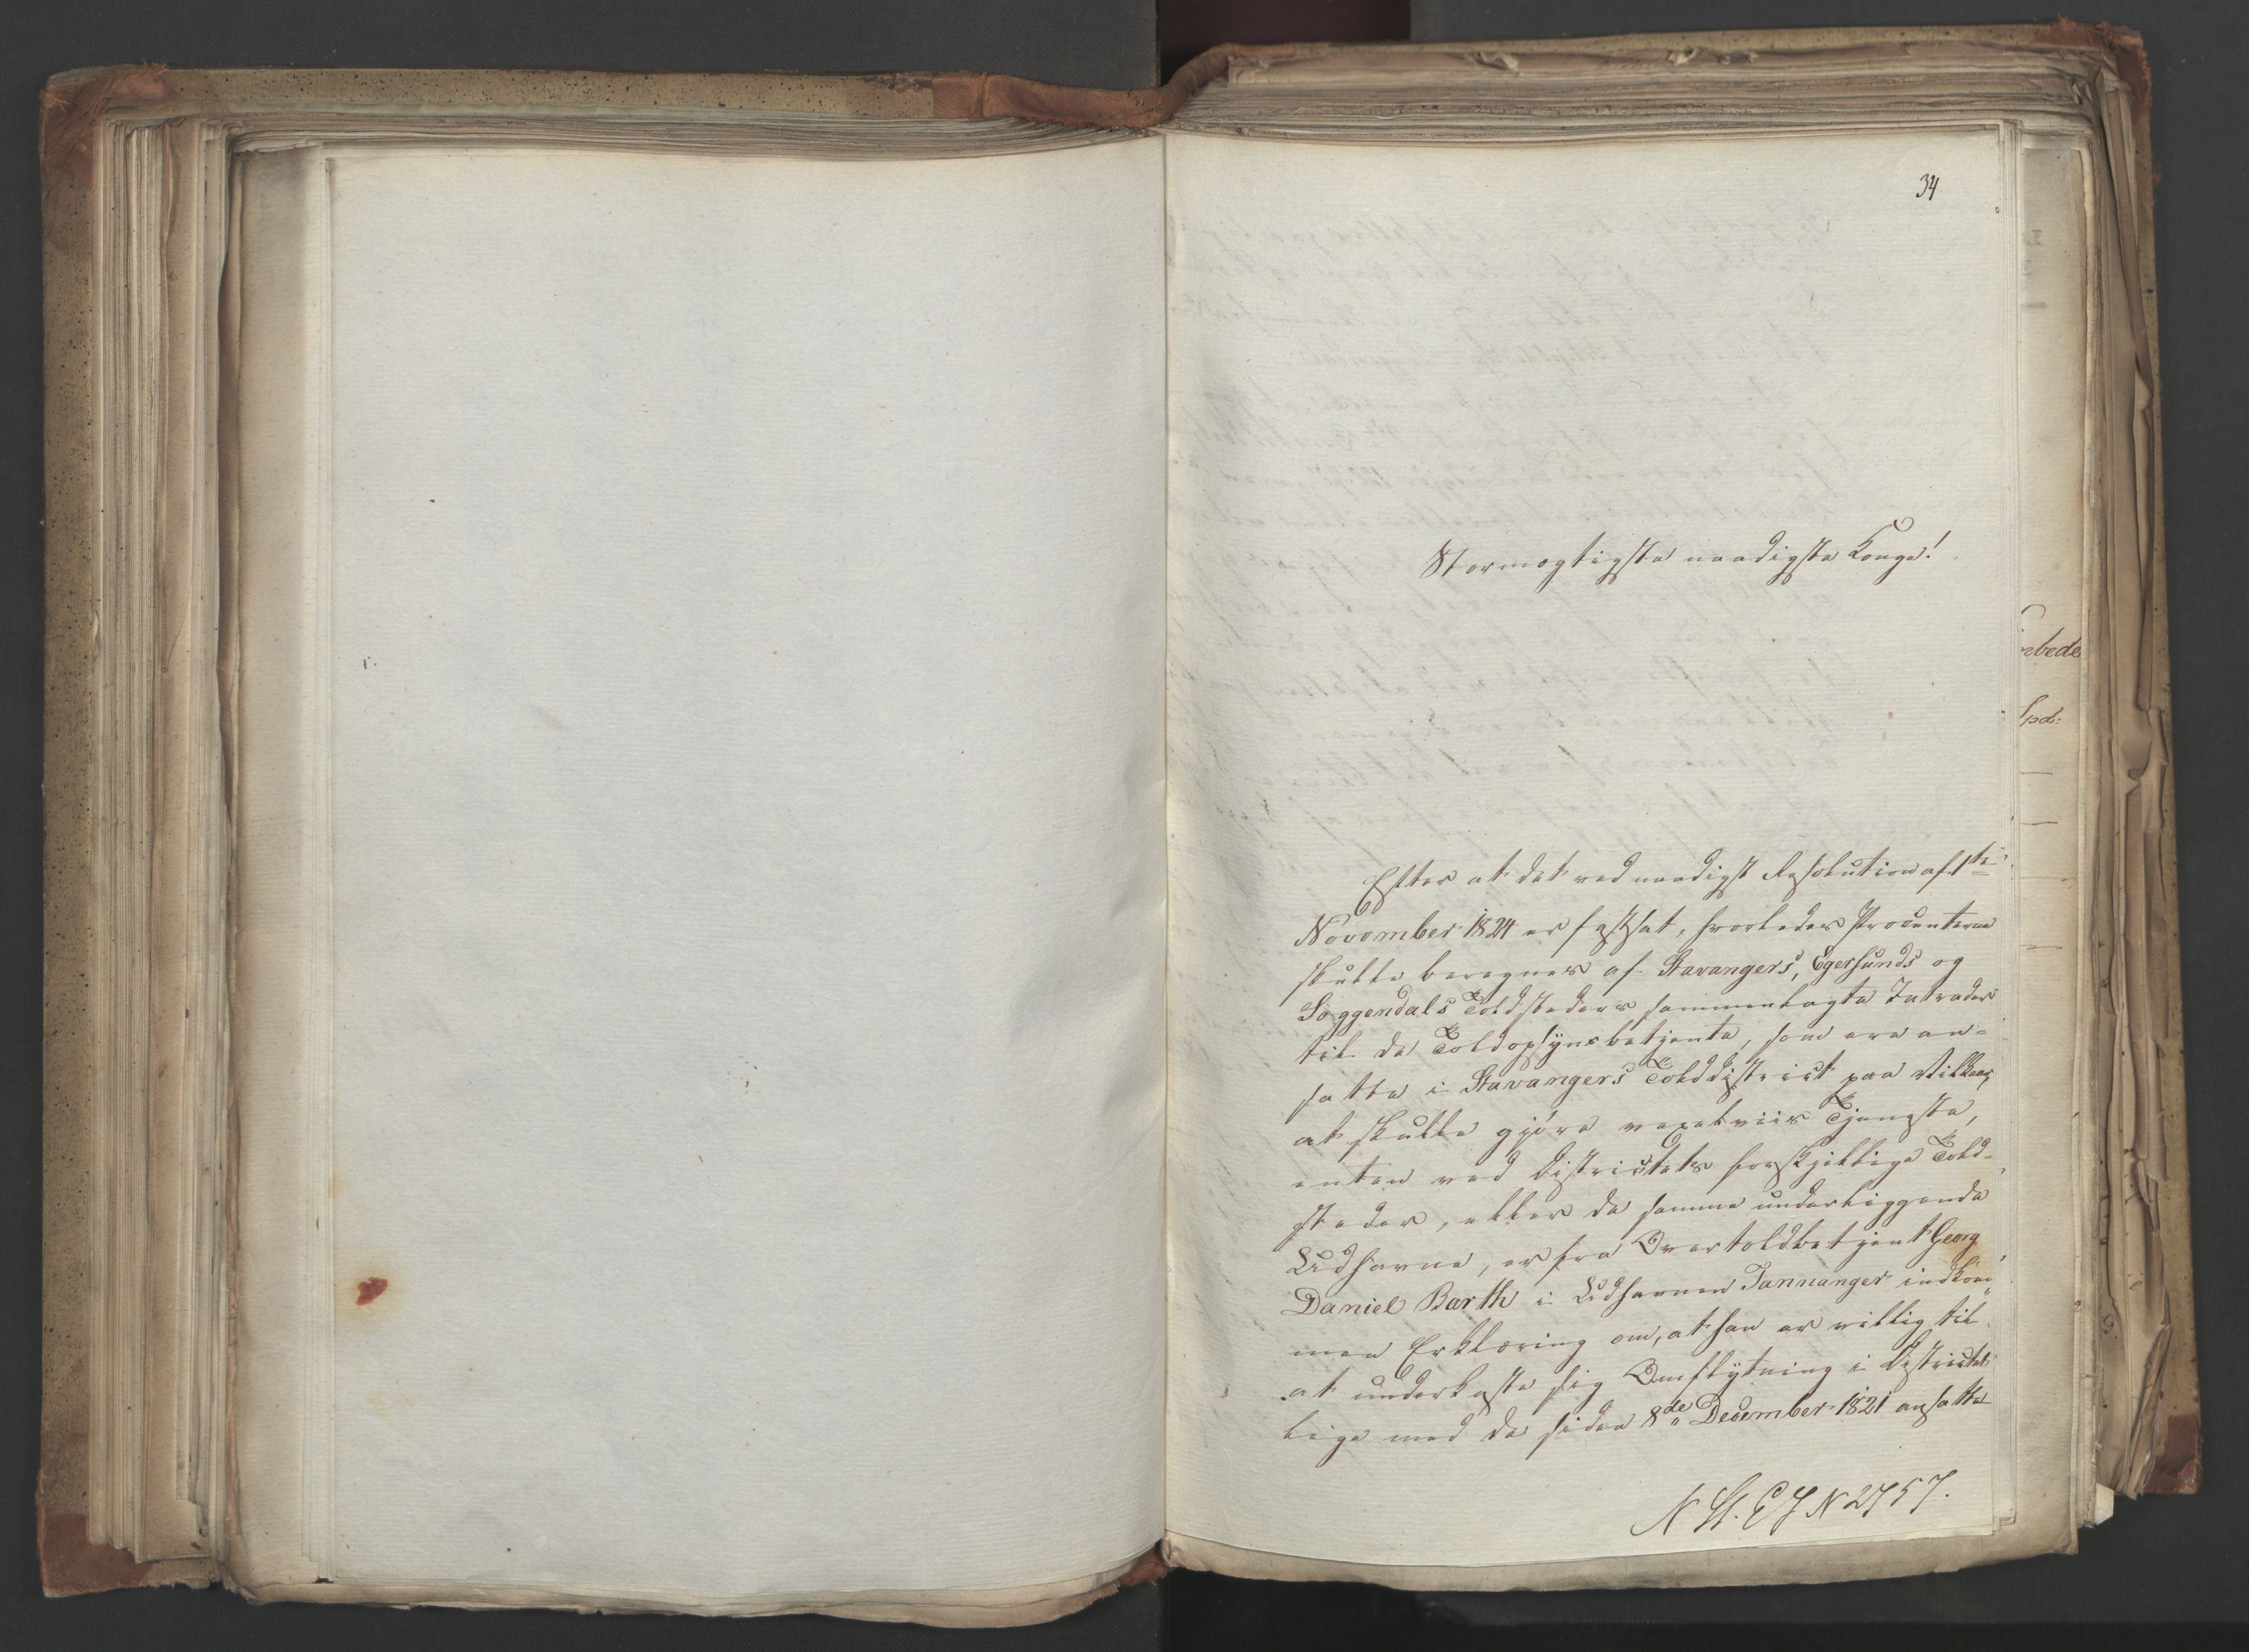 34
Stormægtigste naadigste Konge!
Efter at det ved naadigst Resolution af 1ste
November 1824 er fastsat, hvorledes Procenterne
skulle beregnes af Stavangers, Egersunds og
Soggendals Toldsteders sammenlagte Intrader
til de Toldopsynsbetjente, som ere an-
satte i Stavangers Tolddistrict paa Vilkaar
at skulle gjöre vexelviis Tjeneste,
enten ved Districtets forskjellige Told-
steder, eller de samme underliggende
Udhavne, er fra Overtoldbetjent Georg
Daniel Barth i Udhavnen Tannanger indkom-
men Erklæring om, at han er villig til
at underkaste sig Omflytning i Districtet
lige med de siden 8de December 1821 ansatte
N St. E J N 2757.
rbede
Spd: